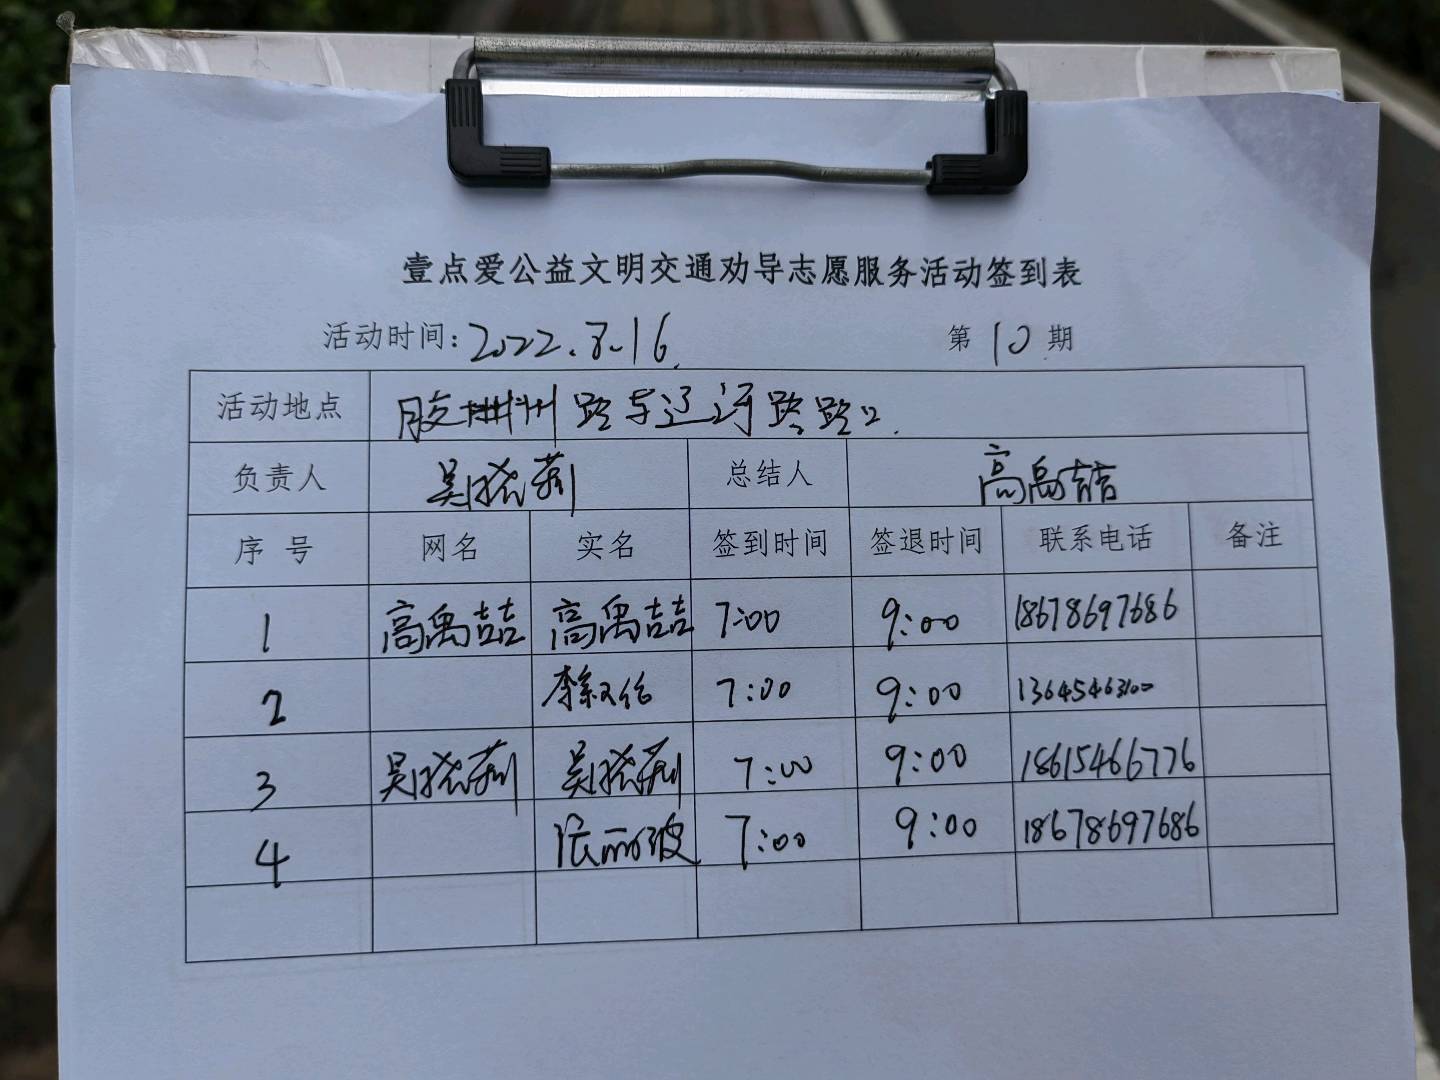 壹点爱公益文明交通劝导志愿服务活动签到表
活动时间：2022.8.16. 第10期
活动地点 胶州路与辽河路路口.
负责人 吴晓莉 总结人 高禹喆
序号 网名 实名 签到时间 签退时间 联系电话 备注
1 高禹喆 高禹喆 7:00 9:00 18678697686
2 李 7:00 9:00 13645463100
3 吴晓莉 吴晓莉 7:00 9:00 18615466776
4 张丽波 7:00 9:00 18678697686